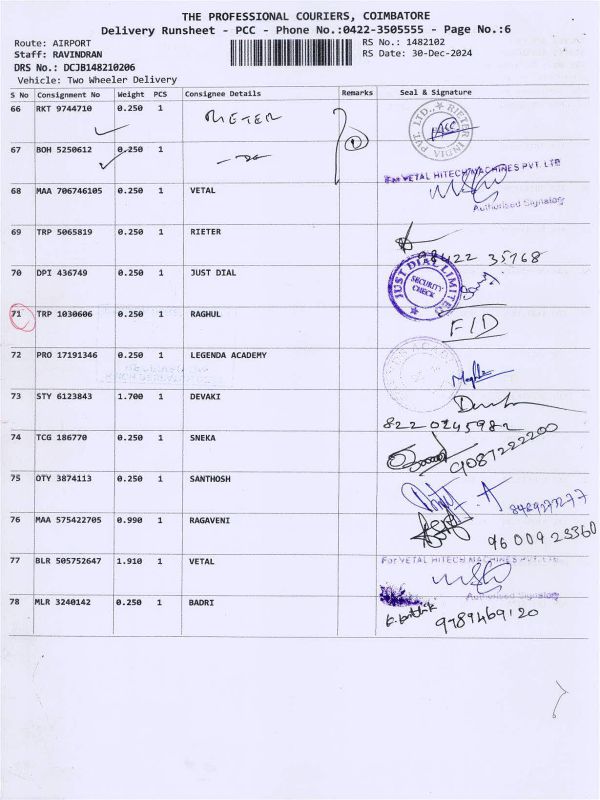 THE PROFESSIONAL COURIERS, COIMBATORE
Delivery Runsheet - PCC - Phone No.:0422-3505555 - Page No.:6
Route: AIRPORT RS No.: 1482102
Staff: RAVINDRAN RS Date: 30-Dec-2024
DRS No.: DCJB148210206
Vehicle: Two Wheeler Delivery
S No Consignment No Weight PCS Consignee Details Remarks Seal & Signature
66 RKT 9744710 0.250 1 RIETER RIETER INDIA PVT. LTD.
67 BOH 5250612 0.250 1
For VETAL HITECH MACHINES PVT. LTD
68 MAA 706746105 0.250 1 VETAL
Authorised Signatory
69 TRP 5065819 0.250 1 RIETER
98422 35768
70 DPI 436749 0.250 1 JUST DIAL JUST DIAL LIMITED SECURITY CHECK
71 TRP 1030606 0.250 1 RAGHUL F/D
72 PRO 17191346 0.250 1 LEGENDA ACADEMY
73 STY 6123843 1.700 1 DEVAKI
8220245982
74 TCG 186770 0.250 1 SNEKA 9087222200
75 OTY 3874113 0.250 1 SANTHOSH
76 MAA 575422705 0.990 1 RAGAVENI 96009 23360
77 BLR 505752647 1.910 1 VETAL For VETAL HITECH MACHINES PVT. LTD.
Authorised Signatory
78 MLR 3240142 0.250 1 BADRI 9789469120